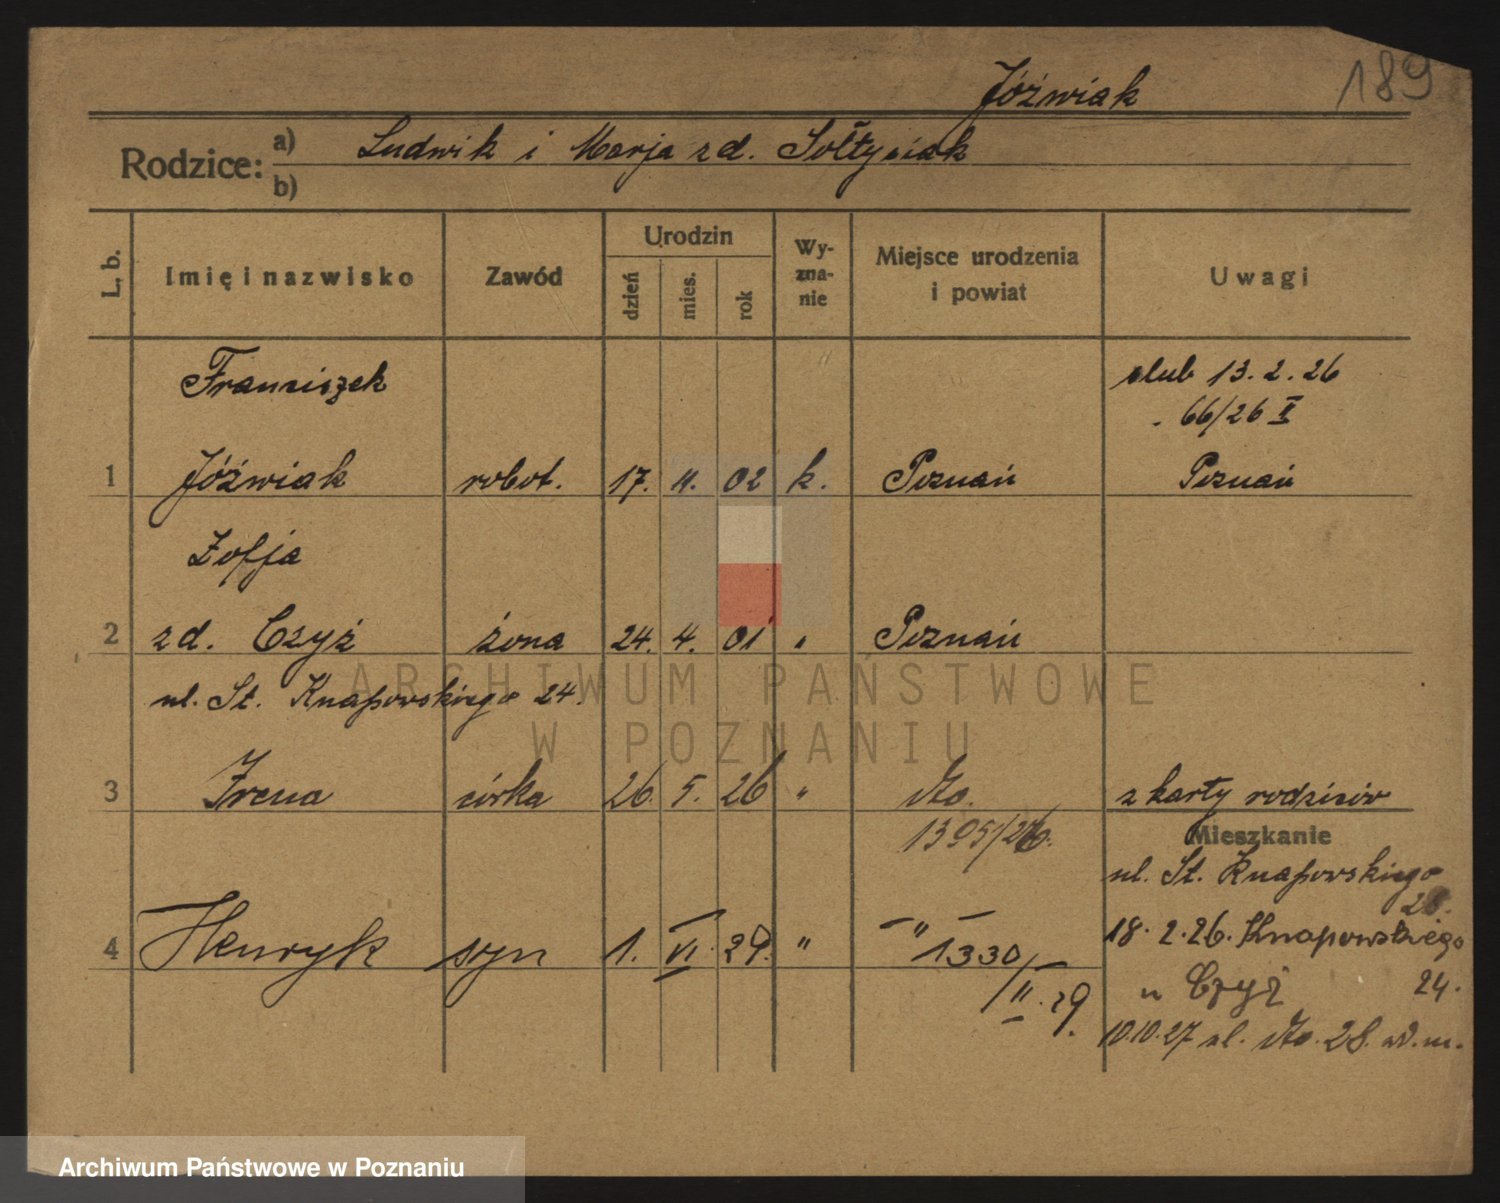 189
Jóźwiak
Rodzice: a) Ludwik i Marja zd. Sołtysiak
b)
L. b. Imię i nazwisko Zawód Urodzin dzień mies. rok Wy-zna-nie Miejsce urodzenia i powiat Uwagi
Franciszek ślub 13.2.26
66/26 II
1 Jóźwiak robot. 17. 11. 02 k. Poznań Poznań
Zofja
2 zd. Czyż żona 24. 4. 01 " Poznań
ul. St. Knapowskiego 24.
3 Irena córka 26. 5. 26 " dto. z karty rodziców
1395/26. Mieszkanie
ul. St. Knapowskiego
4 Henryk syn 1. VI. 29. " " 1330/II.29. 18.2.26. Knapowskiego
u Czyż 24.
10.10.27 ul. dto. 28.
ARCHIWUM PAŃSTWOWE
W POZNANIU
Archiwum Państwowe w Poznaniu